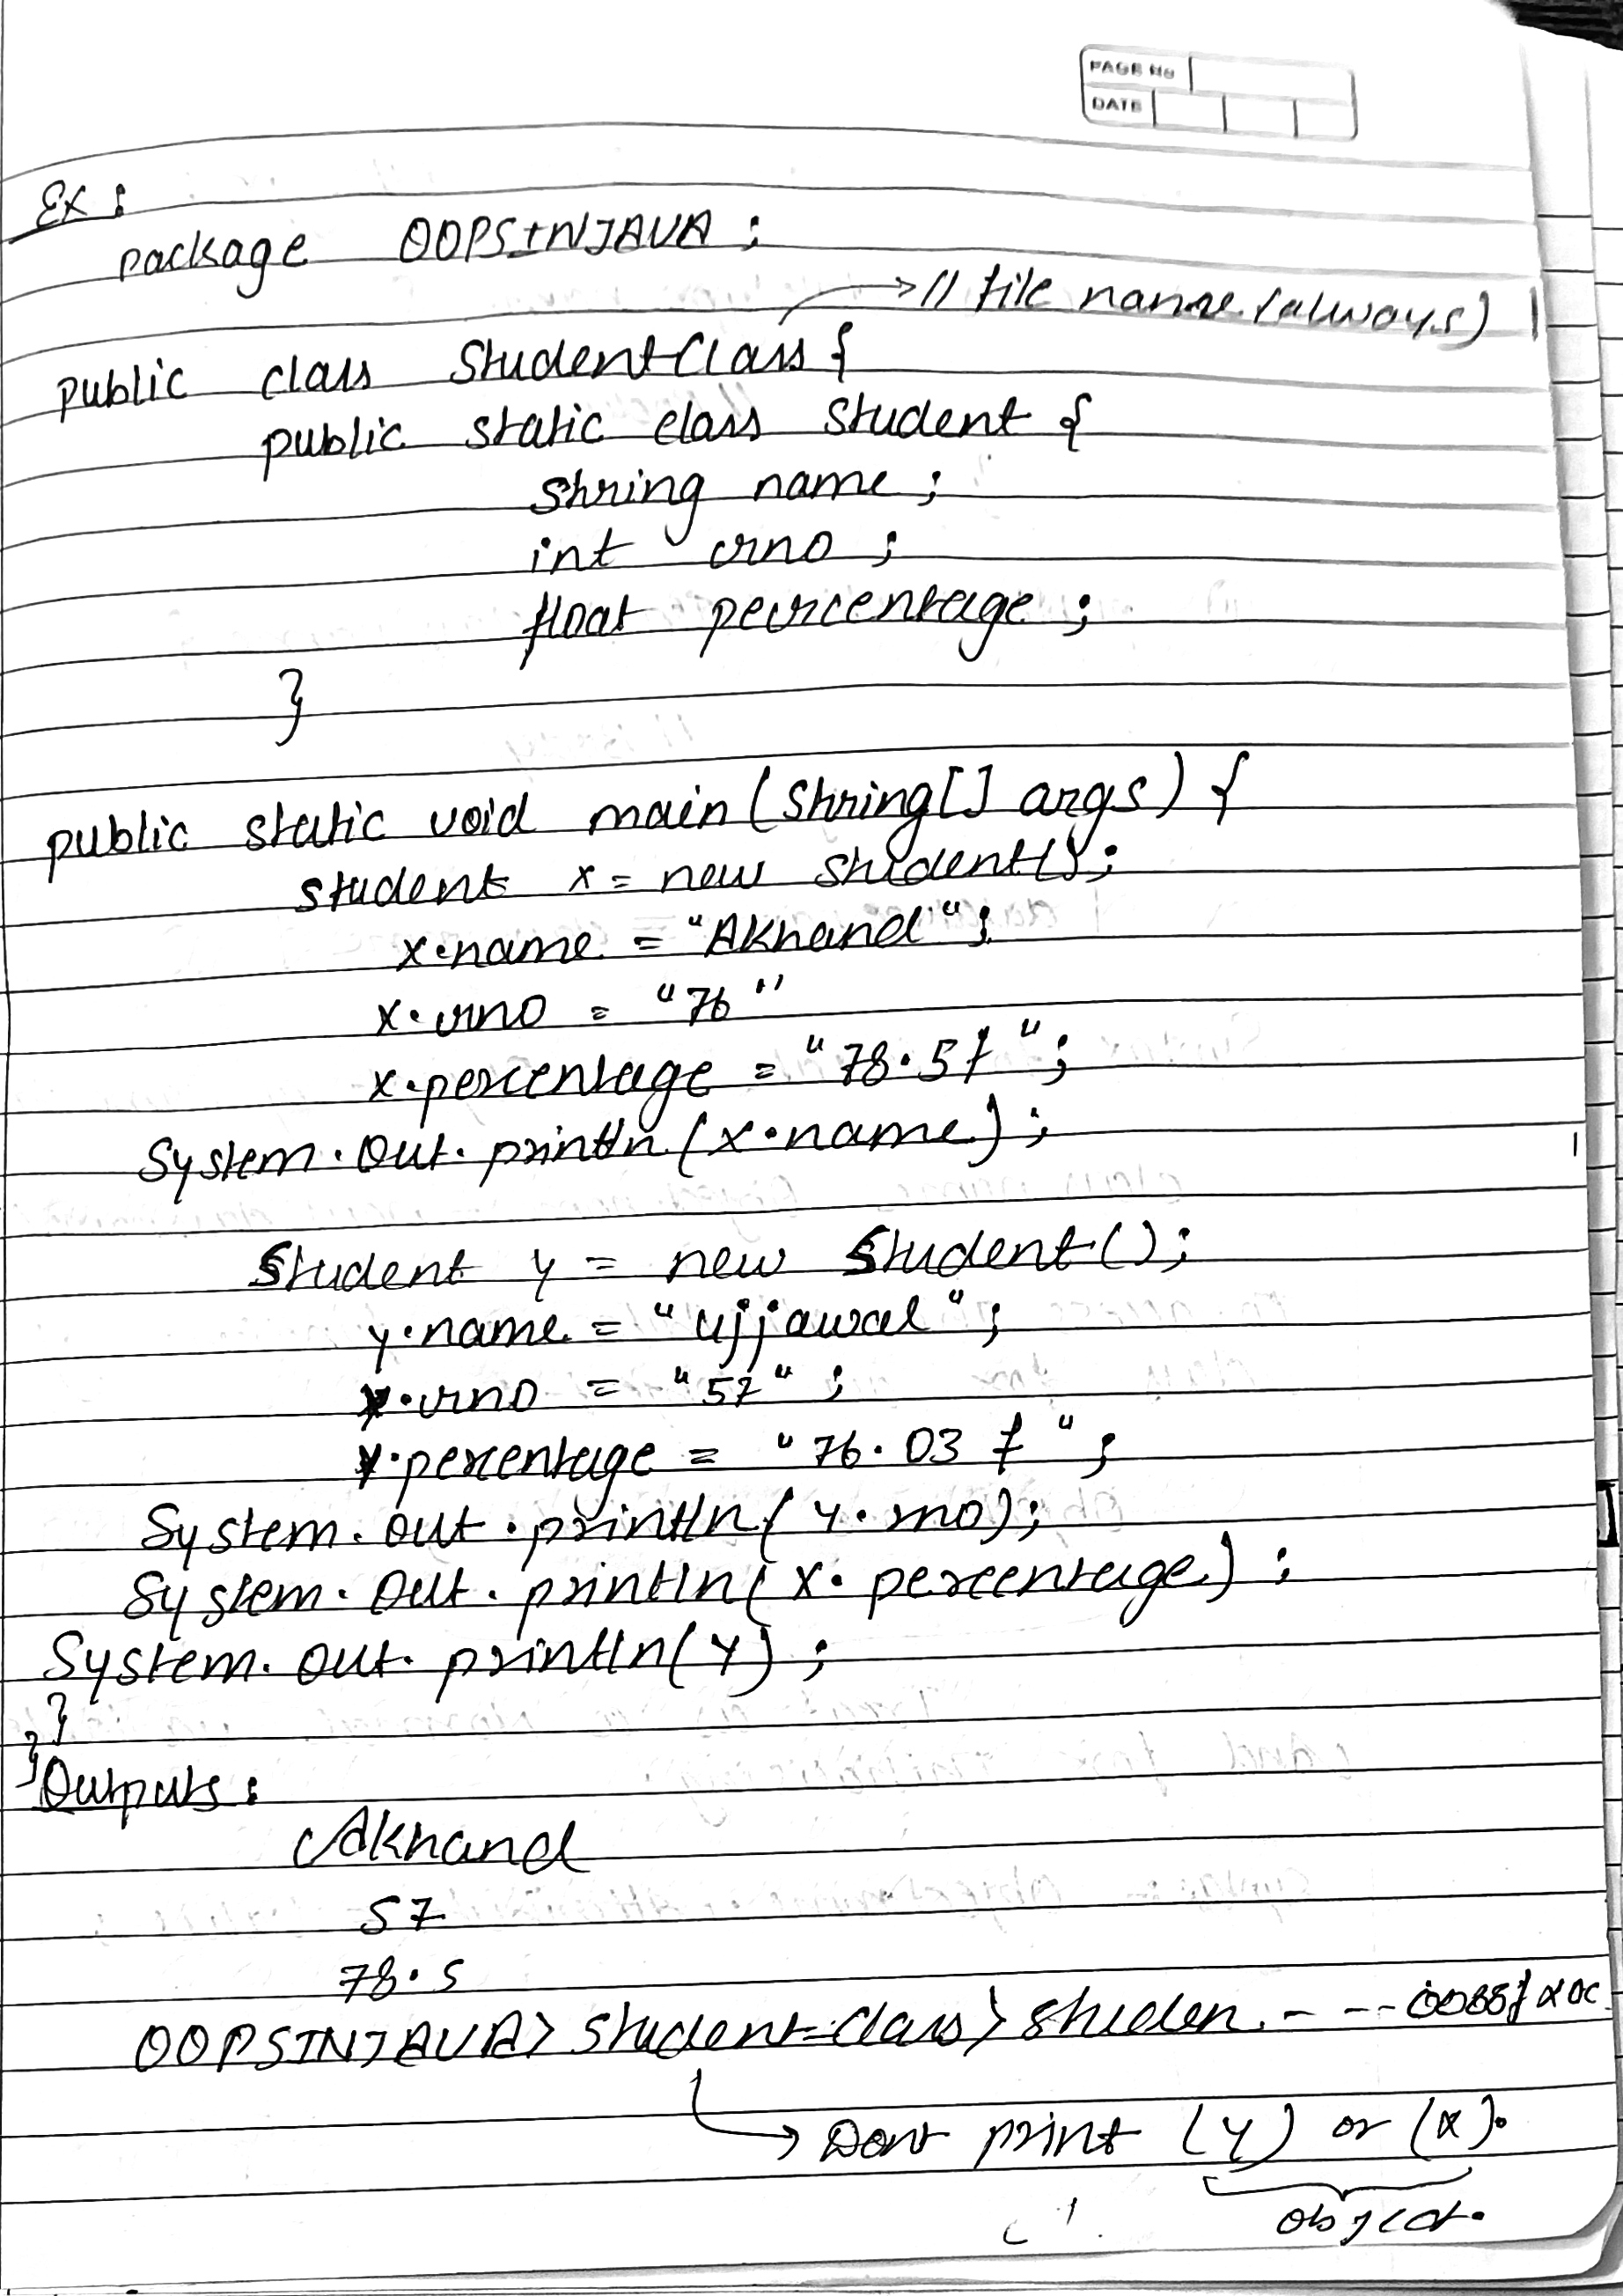 PAGE No
DATE
Ex :
package OOPSINJAVA ;
→ // file name (always)
public class StudentClass {
public static class Student {
String name ;
int rno ;
float percentage ;
}
public static void main (String[] args) {
student x = new student();
x.name = "Akhand" ;
x.rno = "76"
x.percentage = "78.5f" ;
System.out.println (x.name) ;
Student y = new Student() ;
y.name = "Ujjawal" ;
y.rno = "57" ;
y.percentage = "76.03 f" ;
System.out.println( y.rno) ;
System.out.println( x.percentage) ;
System.out.println(y) ;
}
}
Outputs :
Akhand
57
78.5
OOPSINJAVA> Student-Class> Studen. - --
→ Dont print (y) or (x).
object.